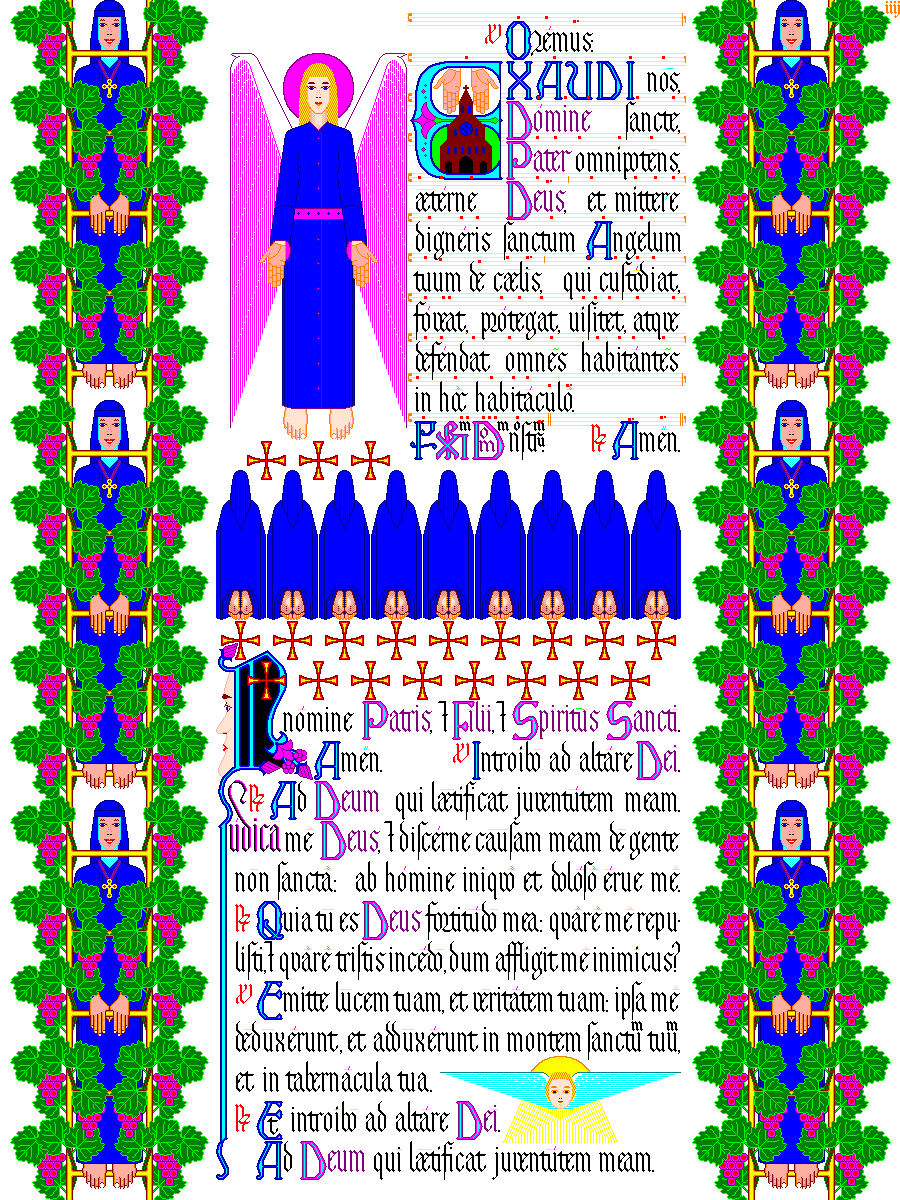 iiij
℣ Orémus.
EXAUDI nos,
Domine ſancte,
Pater omnipotens,
æterne Deus, et mittere
dignéris ſanctum Angelum
tuum de cælis, qui cuſtodiat,
foveat, prótegat, uiſitet, atque
defendat omnes habitántes
in hoc habitáculo.
℟ Amen.
IN nómine Patris, ⁊ Filii, ⁊ Spiritus Sancti.
Amen. ℣ Introibo ad altáre Dei.
℟ Ad Deum qui lætificat juventútem meam.
Judica me Deus, ⁊ diſcérne cauſam meam de gente
non ſancta: ab hómine iniquo et doloſo érue me.
℟ Quia tu es Deus fortitúdo mea: quáre me repu-
liſti, ⁊ quáre triſtis incédo, dum affligit me inimicus?
℣ Emitte lucem tuam, et veritátem tuam: ipſa me
deduxérunt, et adduxérunt in montem ſanctū tuū,
et in tabernácula tua.
℟ Et introibo ad altáre Dei.
Ad Deum qui lætificat juventútem meam.